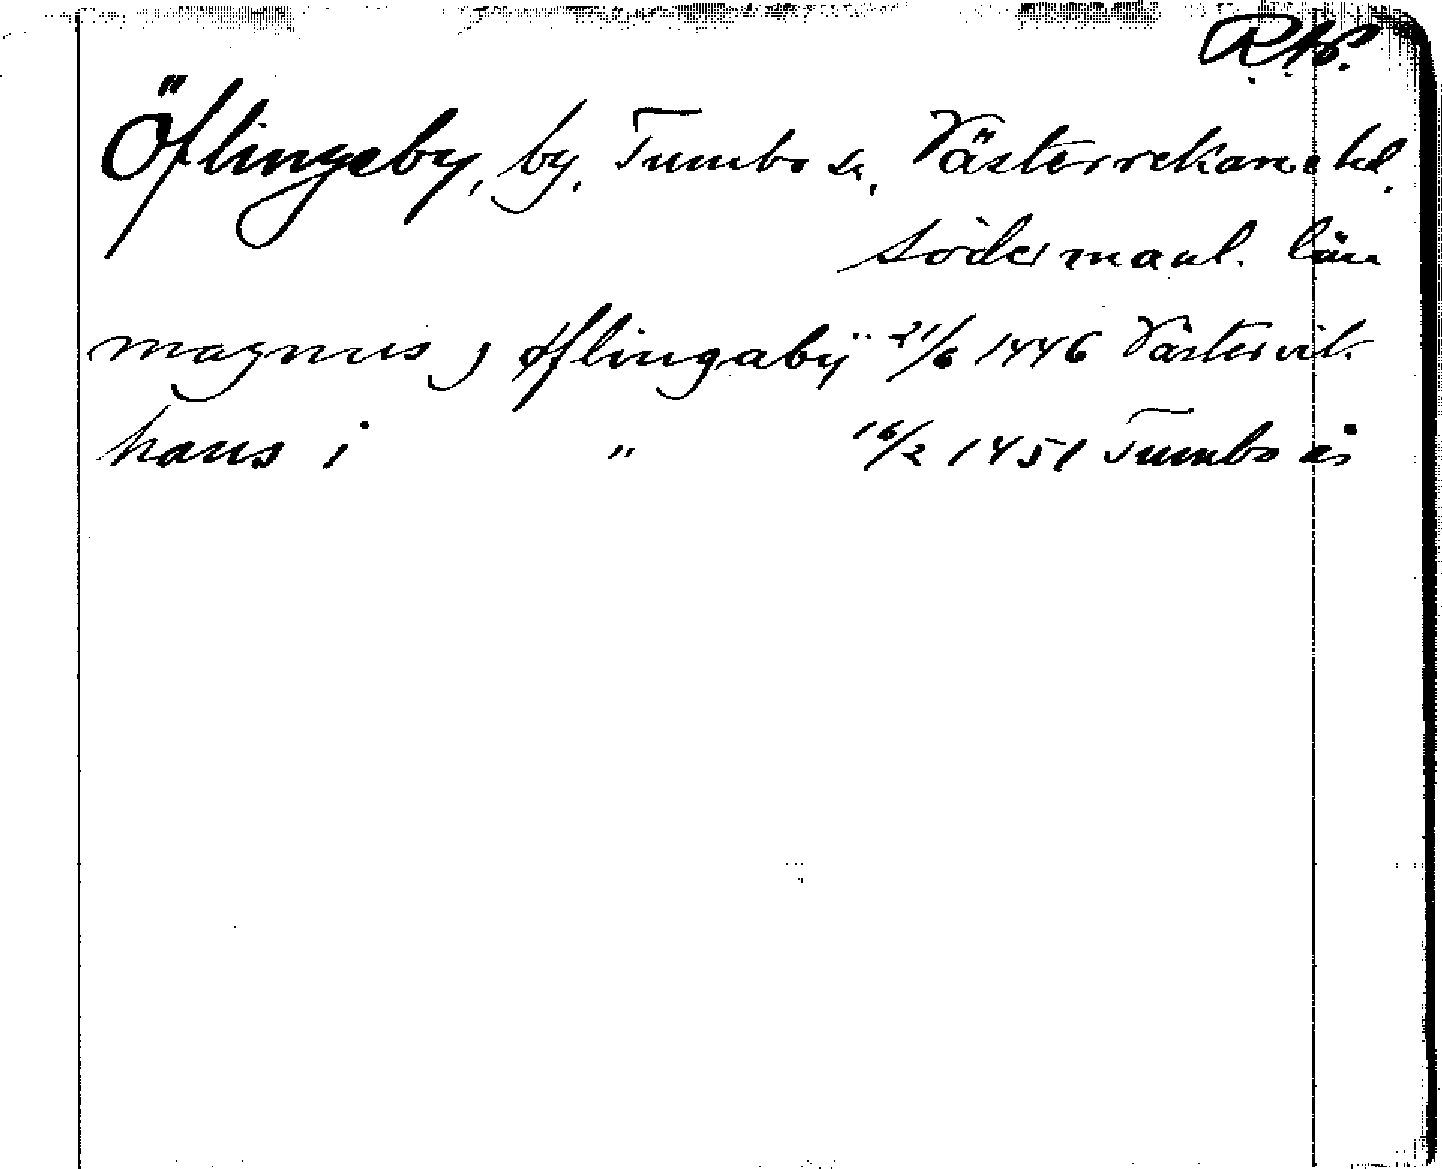 R.A.P.
Öflingeby, by, Tumbo sn, Västerrekarne hd.
Södermanl. län
magnus j øflingabÿ 21/6 1446 Västervik
hans i " 16/2 1451 Tumboås